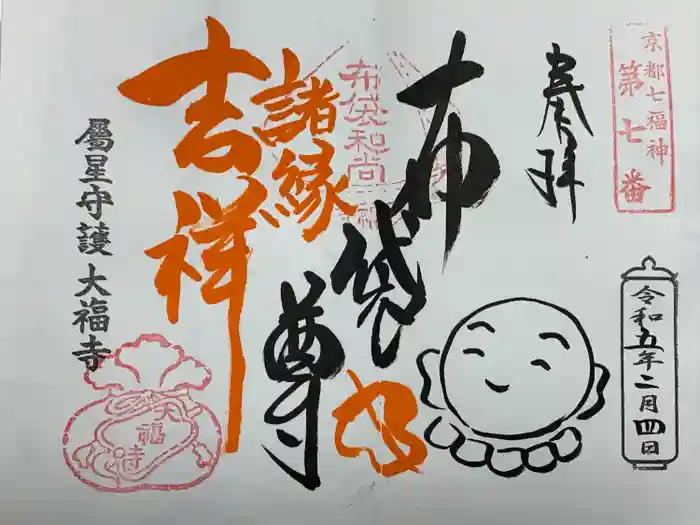 京都七福神
第七番
令和五年二月四日
奉拝
布袋尊
布袋和尚
諸縁
吉祥
屬星守護 大福寺
大福寺